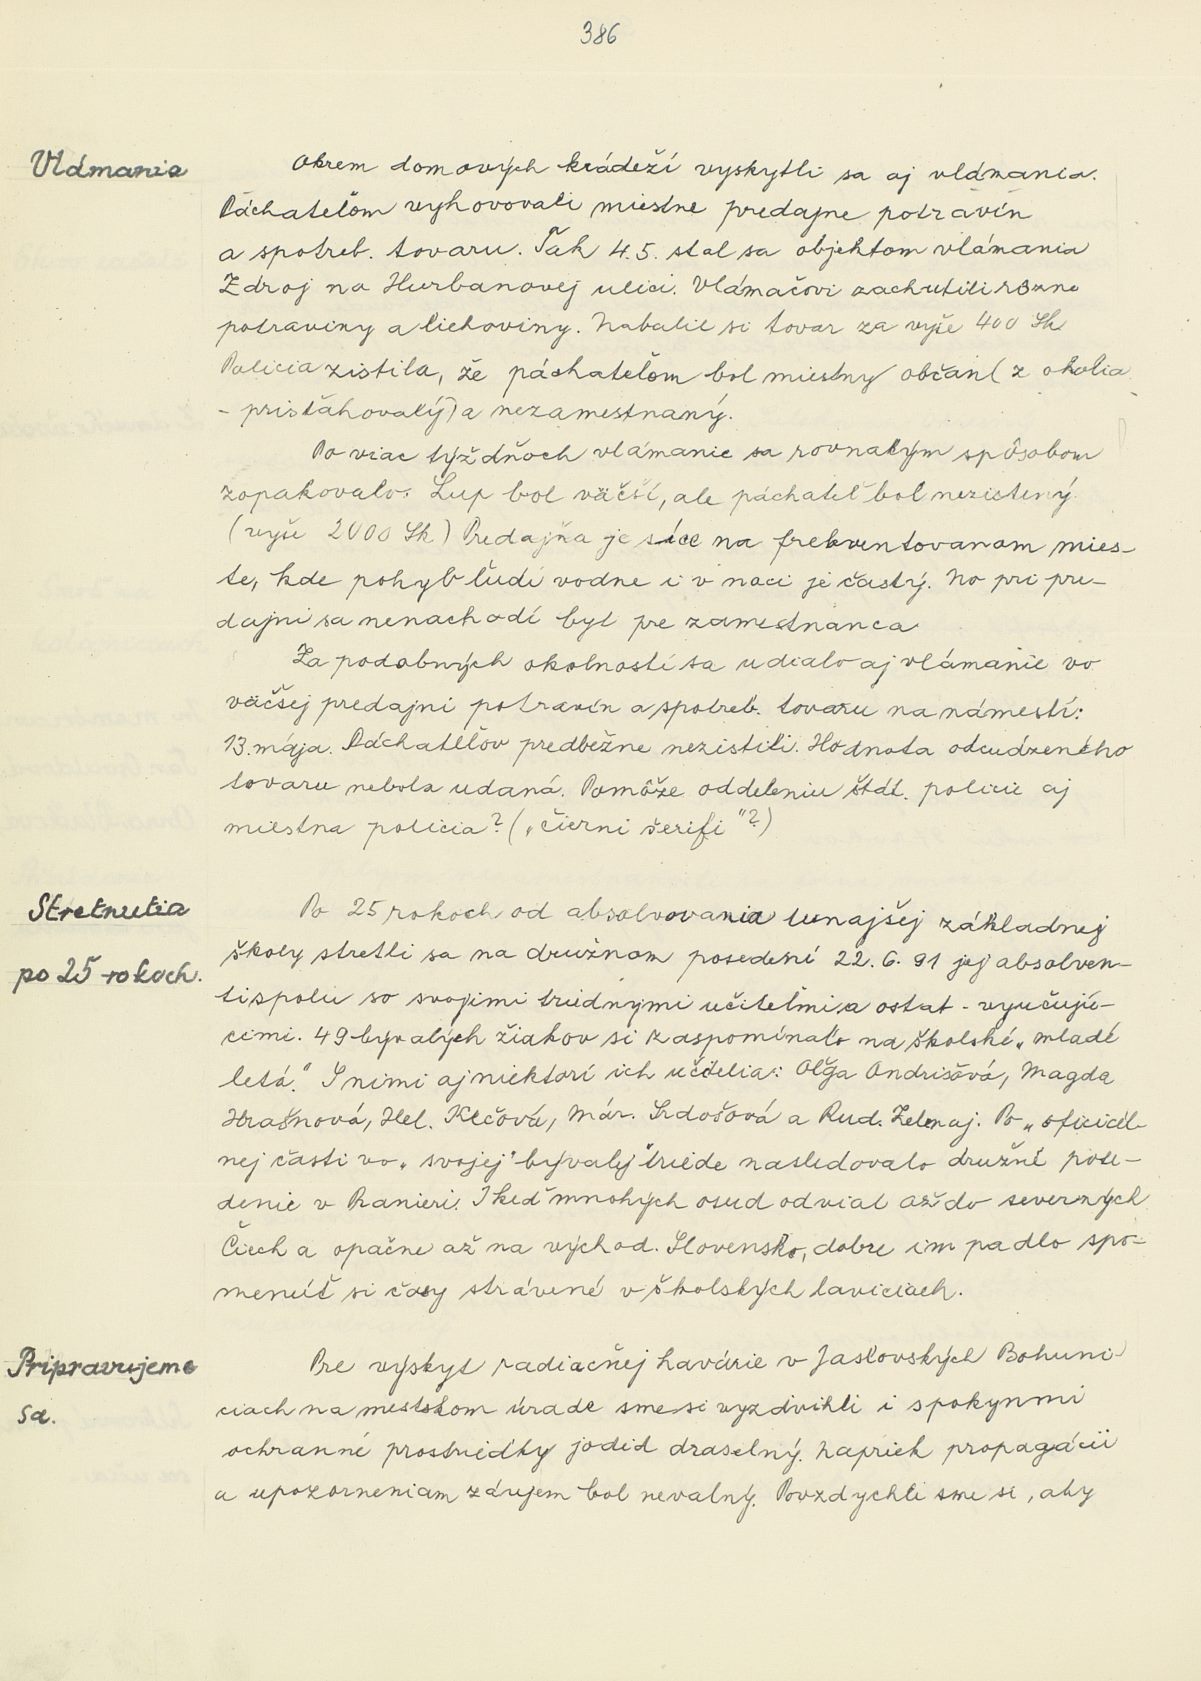 386
Vlámania
Okrem domových krádeží vyskytli sa aj vlámania.
Páchateľom vyhovovali miestne predajne potravín
a spotreb. tovaru. Tak 4.5. stal sa objektom vlámania
Zdroj na Hurbanovej ulici. Vlámačovi zachutili rôzne
potraviny a liehoviny. Nabalil si tovar za vyše 400 Sk
Polícia zistila, že páchateľom bol miestny občan (z okolia
- prisťahovalý) a nezamestnaný.
Po viac týždňoch vlámanie sa rovnakým spôsobom
zopakovalo. Lup bol väčší, ale páchateľ bol nezistený
(vyše 2000 Sk) Predajňa je síce na frekventovanom mies-
te, kde pohyb ľudí vodne i v noci je častý. No pri pre-
dajni sa nenachodí byt pre zamestnanca
Za podobných okolností sa udialo aj vlámanie vo
väčšej predajni potravín a spotreb. tovaru na námestí:
13. mája. Páchateľov predbežne nezistili. Hodnota odcudzeného
tovaru nebola udaná. Pomôže oddeleniu štát. polície aj
miestna polícia? („čierni šerifi"?)
Stretnutia
po 25 rokoch.
Po 25 rokoch od absolvovania tunajšej základnej
školy stretli sa na družnom posedení 22. 6. 91 jej absolven-
ti spolu so svojimi triednymi učiteľmi a ostat - vyučujú-
cimi. 49 bývalých žiakov si zaspomínalo na školské „mladé
letá." S nimi aj niektorí ich učitelia: Oľga Andrišová, Magda
Hrašnová, Hel. Klčová, Már. Srdošová a Rud. Zelenaj. Po „oficiál-
nej časti vo „svojej" bývalej triede nasledovalo družné pose-
denie v Ranieri. I keď mnohých osud odvial až do severných
Čiech a opačne až na východ. Slovensko, dobre im padlo spo-
menúť si časy strávené v školských laviciach.
Pripravujeme
sa.
Pre výskyt radiačnej havárie v Jaslovských Bohuni-
ciach na mestskom úrade sme si vyzdvihli i s pokynmi
ochranné prostriedky jodid draselný. Napriek propagácii
a upozorneniam záujem bol nevalný. Povzdychli sme si, aby